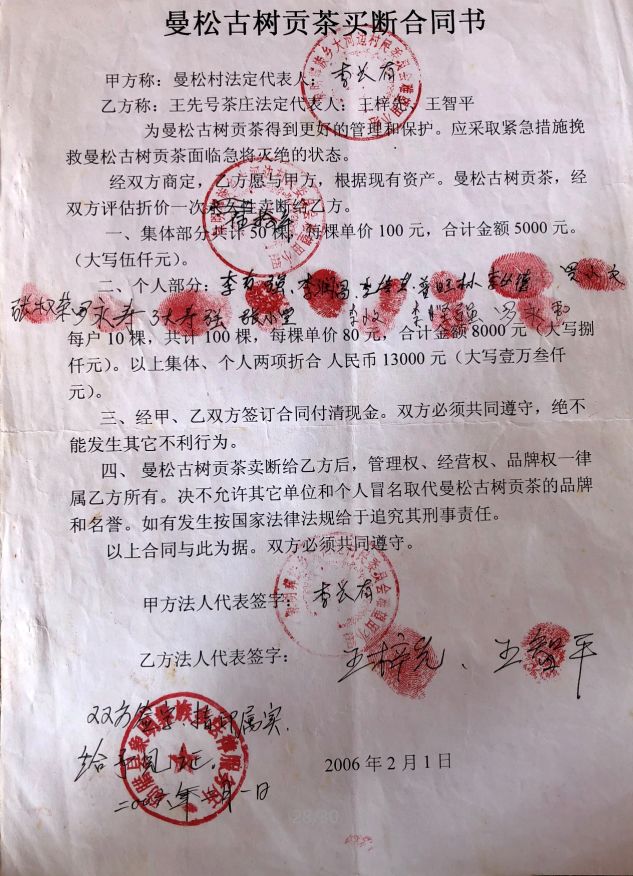 曼松古树贡茶买断合同书
甲方称：曼松村法定代表人：李长有
乙方称：王先号茶庄法定代表人：王梓先、王智平
为曼松古树贡茶得到更好的管理和保护。应采取紧急措施挽
救曼松古树贡茶面临急将灭绝的状态。
经双方商定，乙方愿与甲方，根据现有资产。曼松古树贡茶，经
双方评估折价一次性卖断给乙方。
一、集体部分共计50棵，每棵单价100元，合计金额5000元。
（大写伍仟元）。
二、个人部分：
每户10棵，共计100棵，每棵单价80元，合计金额8000元（大写捌
仟元）。以上集体、个人两项折合 人民币13000元（大写壹万叁仟
元）。
三、经甲、乙双方签订合同付清现金。双方必须共同遵守，绝不
能发生其它不利行为。
四、 曼松古树贡茶卖断给乙方后，管理权、经营权、品牌权一律
属乙方所有。决不允许其它单位和个人冒名取代曼松古树贡茶的品牌
和名誉。如有发生按国家法律法规给于追究其刑事责任。
以上合同与此为据。双方必须共同遵守。
甲方法人代表签字：李长有
乙方法人代表签字：王梓先、王智平
双方签字、指印属实.
给予见证。
2006年2月1日
28/80